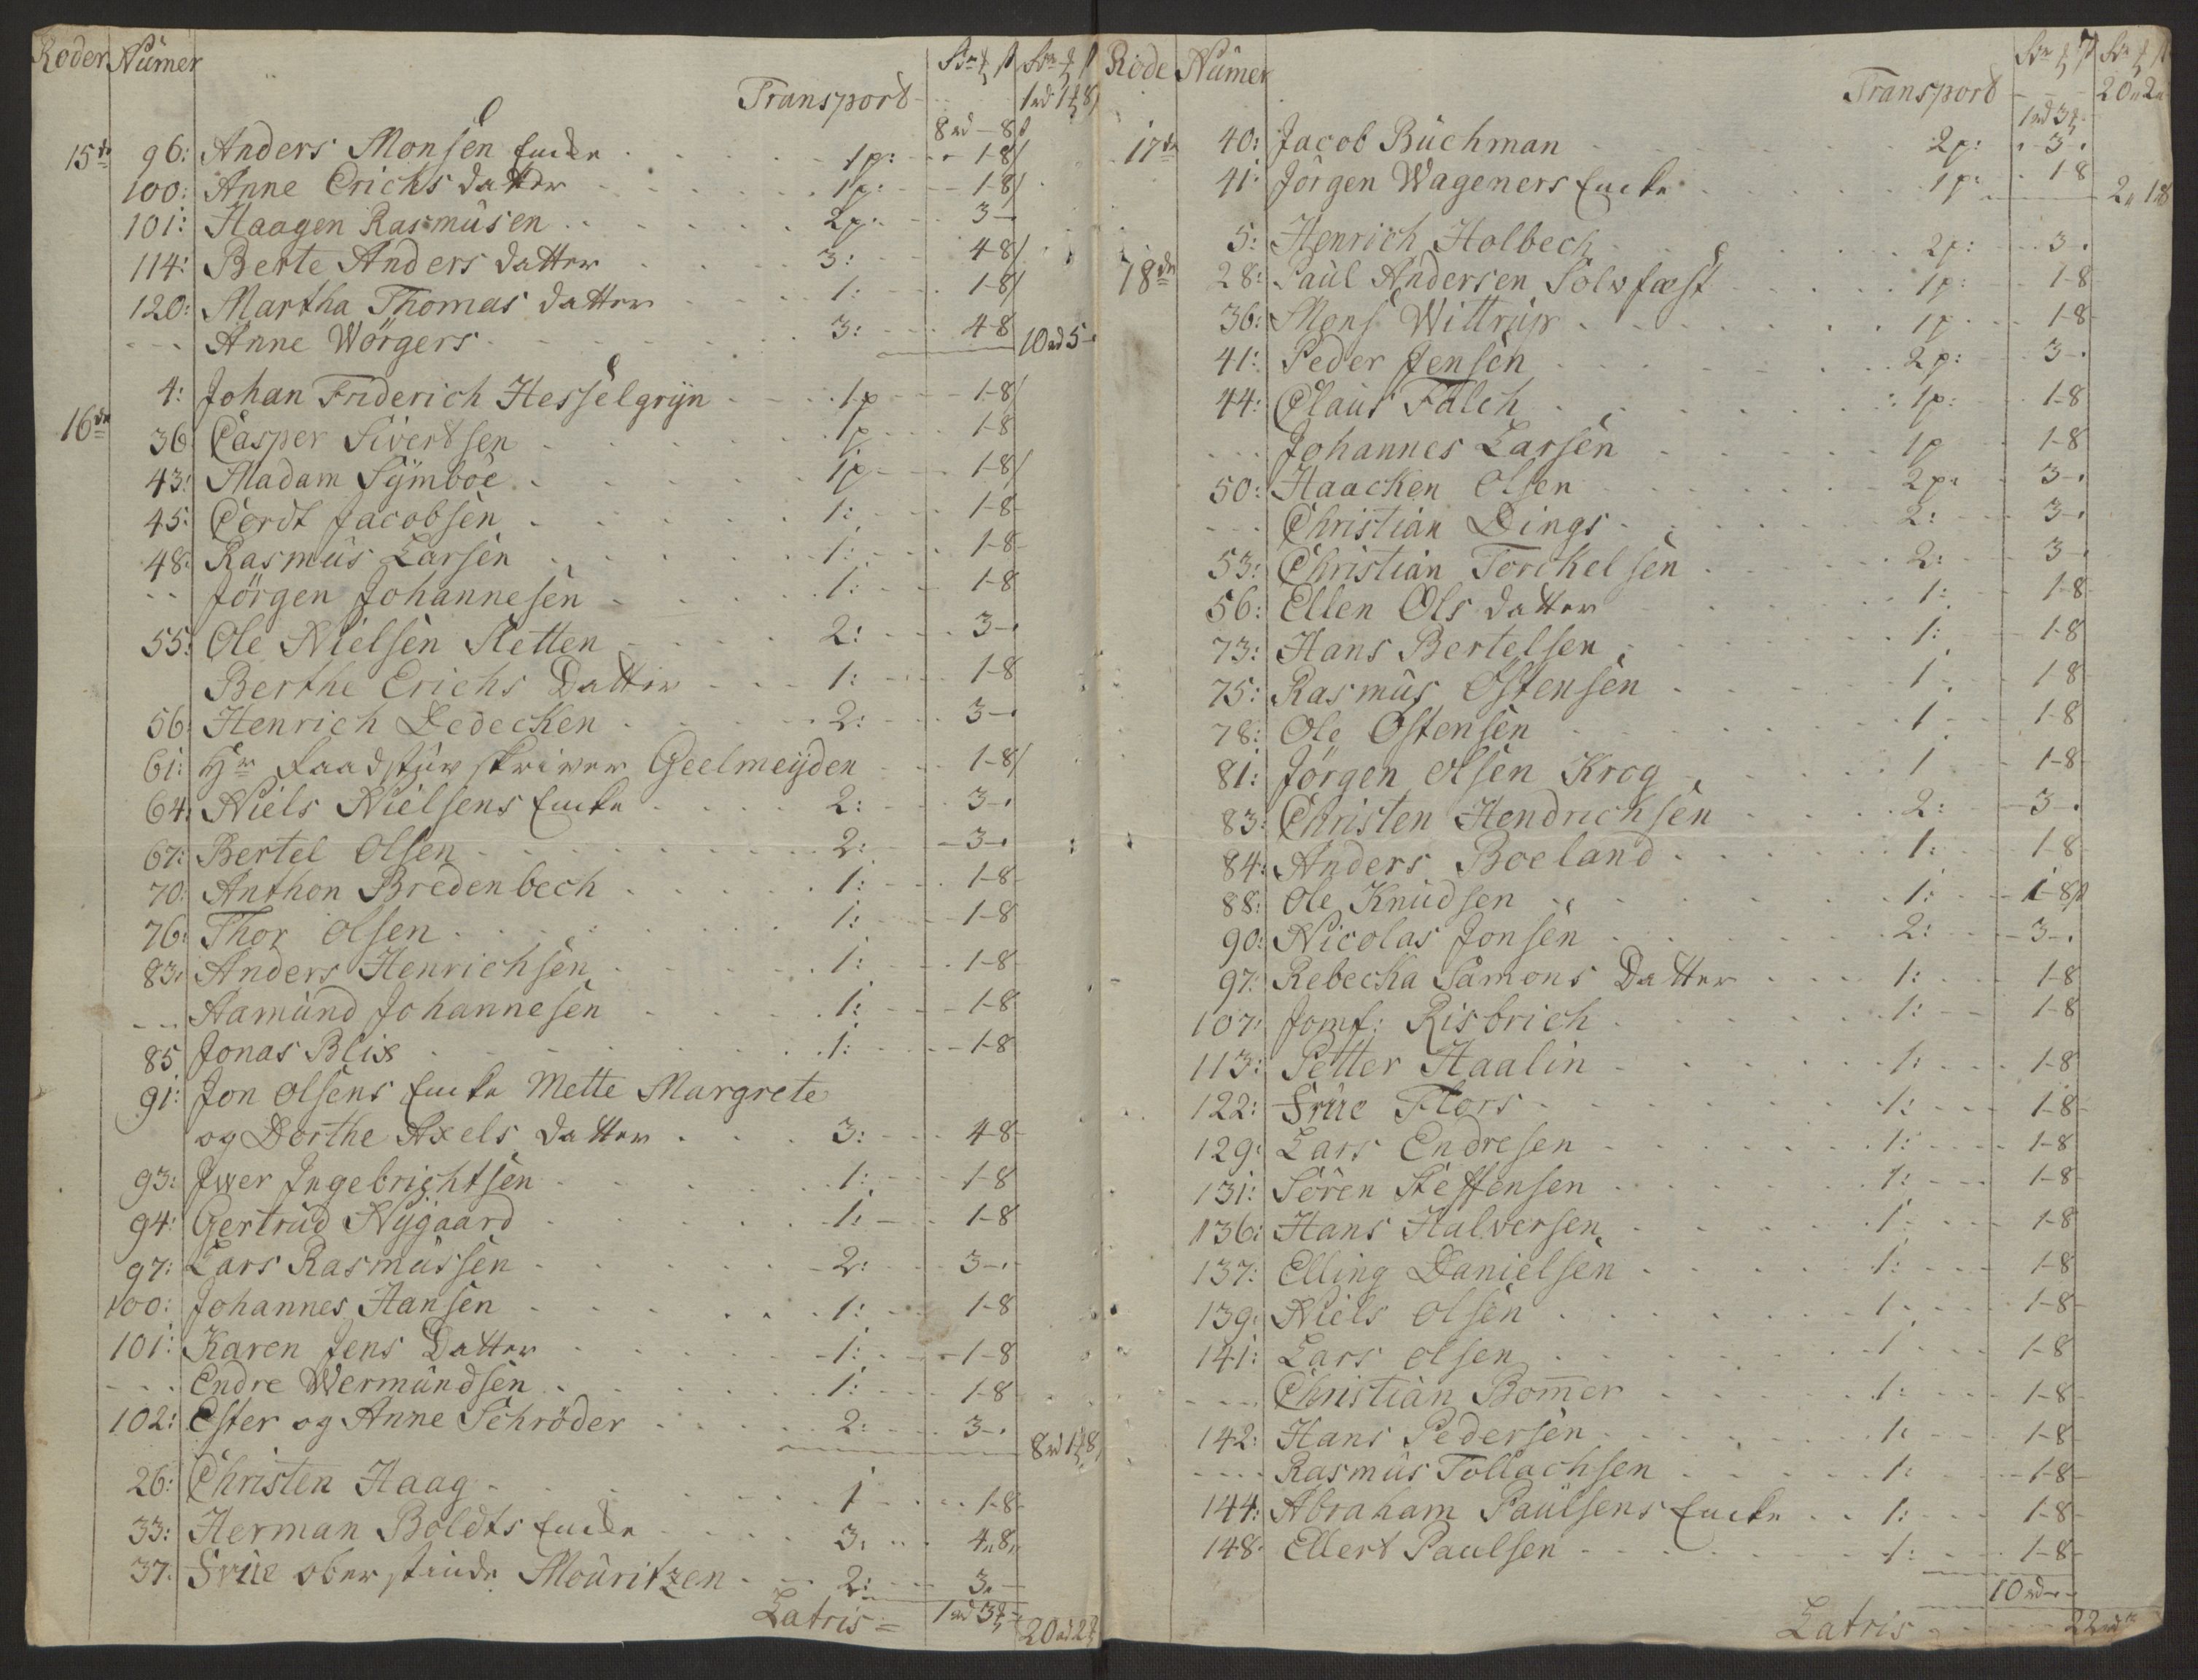 Roder Numer
Transport - 1 rd 1 8
8 rd - 8
15de 96: Anders Monsen Encke 1 p: 1-8
100: Anne Erichs datter 1 p: 1-8
101: Haagen Rasmusen 2 p: 3-
114: Berte Anders datter 3: 4 8
120: Martha Thomas datter 1: 1-8
--- Anne Wörgers 3: 4 8 10 rd 5-
16de 4: Johan Friderich Hesselgrÿn 1 p 1-8
36 Casper Sivertsen 1 p 1-8
43: Madam Sÿmboe 1 p 1-8
45: Cordt Jacobsen 1: 1-8
48: Rasmus Larsen 1: 1-8
-- Jörgen Johannesen 1: 1-8
55: Ole Nielsen Sletten 2: 3-
Berthe Erichs Datter 1: 1-8
56: Henrich Dedecken 2: 3-
61: Hr Raadstue skriver Geelmeÿden 1-8
64: Niels Nielsens Encke 2: 3-
67: Bertel Olsen 2: 3-
70: Anthon Bredenbech 1: 1-8
76: Thor Olsen 1: 1-8
83: Anders Henrichsen 1: 1-8
--- Aamund Johannesen 1: 1-8
85 Jonas Blix 1: 1-8
91: Jon Olsens Encke Mette Margrete
og Dorthe Axels datter 3: 4 8
93: Jwer Ingebrichtsen 1: 1-8
94: Gertrud Nÿgaard 1: 1-8
97: Lars Rasmussen 2: 3-
100: Johannes Hansen 1: 1-8
101: Karen Jens Datter 1: 1-8
--- Endre Wermundsen 1: 1-8
102: Ester og Anne Schröder 2: 3- 8 rd 1 8
26: Christen Haag 1 1-8
33: Herman Boldts Encke 3. 4 8
37: Frue oberstinde Mouritzen 2: 3.
Latris = 1 rd 3 20 rd 2
Rode Numer
Transport - 20 2
1 rd 3
17de 40: Jacob Buchman 2 p: 3-
41: Jörgen Wageners Encke 1 p: 1-8 2 1 8
18de 5: Henrich Holbech 2 p: 3-
28: Paul Andersen Solvfæst 1 p: 1-8
36: Mons Wittrup 1 p 1-8
41: Peder Jensen 2 p: 3-
44: Claus Falch 1 p: 1-8
--- Johannes Larsen 1 p 1-8
50: Haacken Olsen 2 p: 3-
--- Christian Dings 2: 3-
53: Christian Torckelsen 2: 3-
56: Ellen Ols datter 1: 1-8
73: Hans Bertelsen 1: 1-8
75: Rasmus Östensen 1 1 8
78: Ole Ostensen 1 1-8
81: Jörgen Olsen Krog 1 1-8
83: Christen Hendricksen 2: 3-
84: Anders Boeland 1: 1-8
88: Ole Knudsen 1: 1-8
90: Nicolas Jonsen 2: 3-
97: Rebecka Samons Datter 1: 1-8
107: Jomf: Risbrich 1: 1-8
113: Petter Haalin 1: 1-8
122: Frue Flors 1: 1-8
129: Lars Endresen 1: 1-8
131: Sören Steffensen 1: 1-8
136: Hans Halversen 1 1-8
137: Elling Danielsen 1: 1-8
139: Niels Olsen 1 1-8
141: Lars Olsen 1 1-8
--- Christian Bom̄er 1: 1-8
142: Hans Pedersen 1: 1-8
---- Rasmus Tollachsen 1: 1-8
144: Abraham Paulsens Encke 1: 1-8
148: Ellert Paulsen 1: 1-8
10 rd
Latris 22 rd